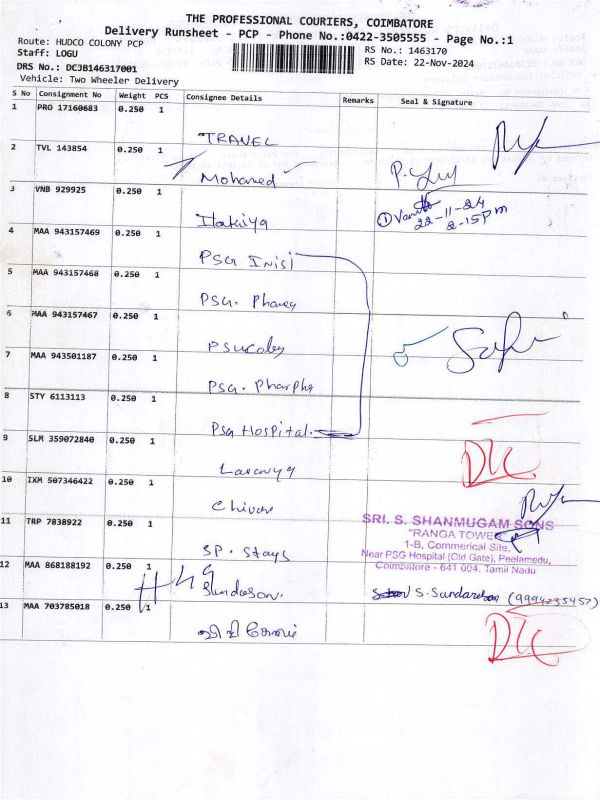 THE PROFESSIONAL COURIERS, COIMBATORE
Delivery Runsheet - PCP - Phone No.:0422-3505555 - Page No.:1
Route: HUDCO COLONY PCP
Staff: LOGU
RS No.: 1463170
RS Date: 22-Nov-2024
DRS No.: DCJB146317001
Vehicle: Two Wheeler Delivery
S No Consignment No Weight PCS Consignee Details Remarks Seal & Signature
1 PRO 17160683 0.250 1 TRAVEL
2 TVL 143854 0.250 1 Mohamed
3 VNB 929925 0.250 1
22-11-24
2-15pm
4 MAA 943157469 0.250 1 PSG
5 MAA 943157468 0.250 1 PSG.
6 MAA 943157467 0.250 1
7 MAA 943501187 0.250 1 PSG.
8 STY 6113113 0.250 1 PSG Hospital.
9 SLM 359072840 0.250 1 Lavanya
10 IXM 507346422 0.250 1
11 TRP 7838922 0.250 1 SP. Stays
SRI. S. SHANMUGAM SONS
"RANGA TOWER"
1-B, Commerical Site,
Near PSG Hospital (Old Gate), Peelamedu,
Coimbatore - 641 004. Tamil Nadu
12 MAA 868188192 0.250 1 S. Sundaresan (9994235457)
13 MAA 703785018 0.250 1